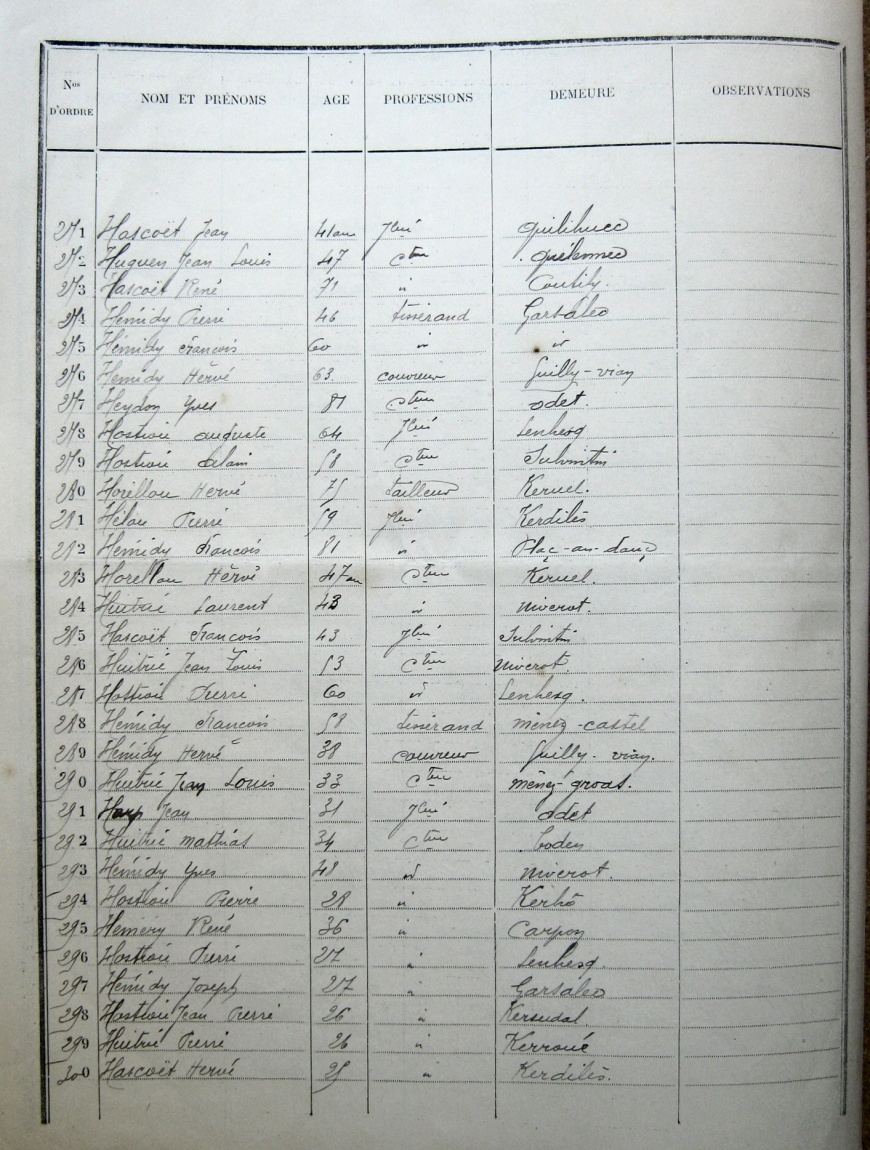 Nos D'ORDRE NOM ET PRÉNOMS AGE PROFESSIONS DEMEURE OBSERVATIONS
271 Hascoët Jean 41 ans Jlié Quilihuec
272 Huguen Jean Louis 47 cteur Quélennec
273 Hascoët René 71 id Coutily
274 Hémidy Pierre 46 tisserand Garsaleo
275 Hémidy François 60 id id
276 Hémidy Hervé 63 couvreur Guilly-vian
277 Heydon Yves 81 cteur odet
278 Hostiou auguste 64 Jlié Lenhesq
279 Hostiou Alain 58 cteur
280 Horellou Hervé 75 tailleur Keruel
281 Hélou Pierre 59 Jlié Kerdilès
282 Hémidy François 81 id
283 Horellou Hervé 47 ans cteur Keruel
284 Huitrié Laurent 43 id niverot
285 Hascoët François 43 Jlié
286 Huitrié Jean Louis 53 cteur niverot
287 Hostiou Pierre 60 id Lenhesq
288 Hémidy François 58 tisserand ménez-castel
289 Hémidy Hervé 38 couvreur Guilly-vian
290 Huitrié Jean Louis 33 cteur ménez-groas
291 Jean 31 Jlié odet
292 Huitrié mathias 34 cteur boden
293 Hémidy Yves 48 id niverot
294 Hostiou Pierre 28 id Kerhô
295 Hémery René 36 id Carpon
296 Hostiou Pierre 27 id Lenhesq
297 Hémidy Joseph 27 id Garsaleo
298 Hostiou Jean Pierre 26 id Kersudal
299 Huitrié Pierre 26 id Kerroué
300 Hascoët Hervé 25 id Kerdilès